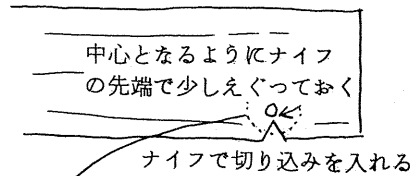 中心となるようにナイフ
の先端で少しえぐっておく
ナイフで切り込みを入れる